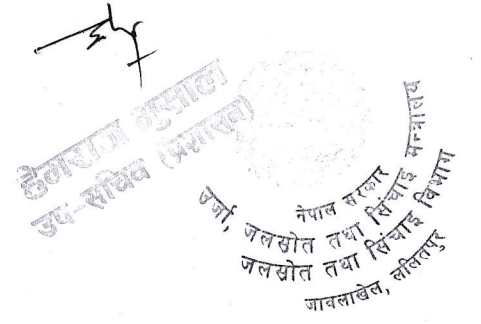 हेमराज भुसाल
उप-सचिव (प्रशासन)
नेपाल सरकार
उर्जा, जलस्रोत तथा सिंचाई मन्त्रालय
जलस्रोत तथा सिंचाई विभाग
जावलाखेल, ललितपुर